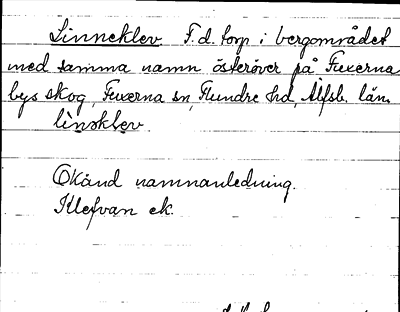 Linneklev F.d. torp i bergområdet
med samma namn österöver på Fuxerna
bys skog, Fuxerna sn, Flundre hd, Älfsb. län.
linsklev.
Okänd namnanledning.
Klefvan ek.